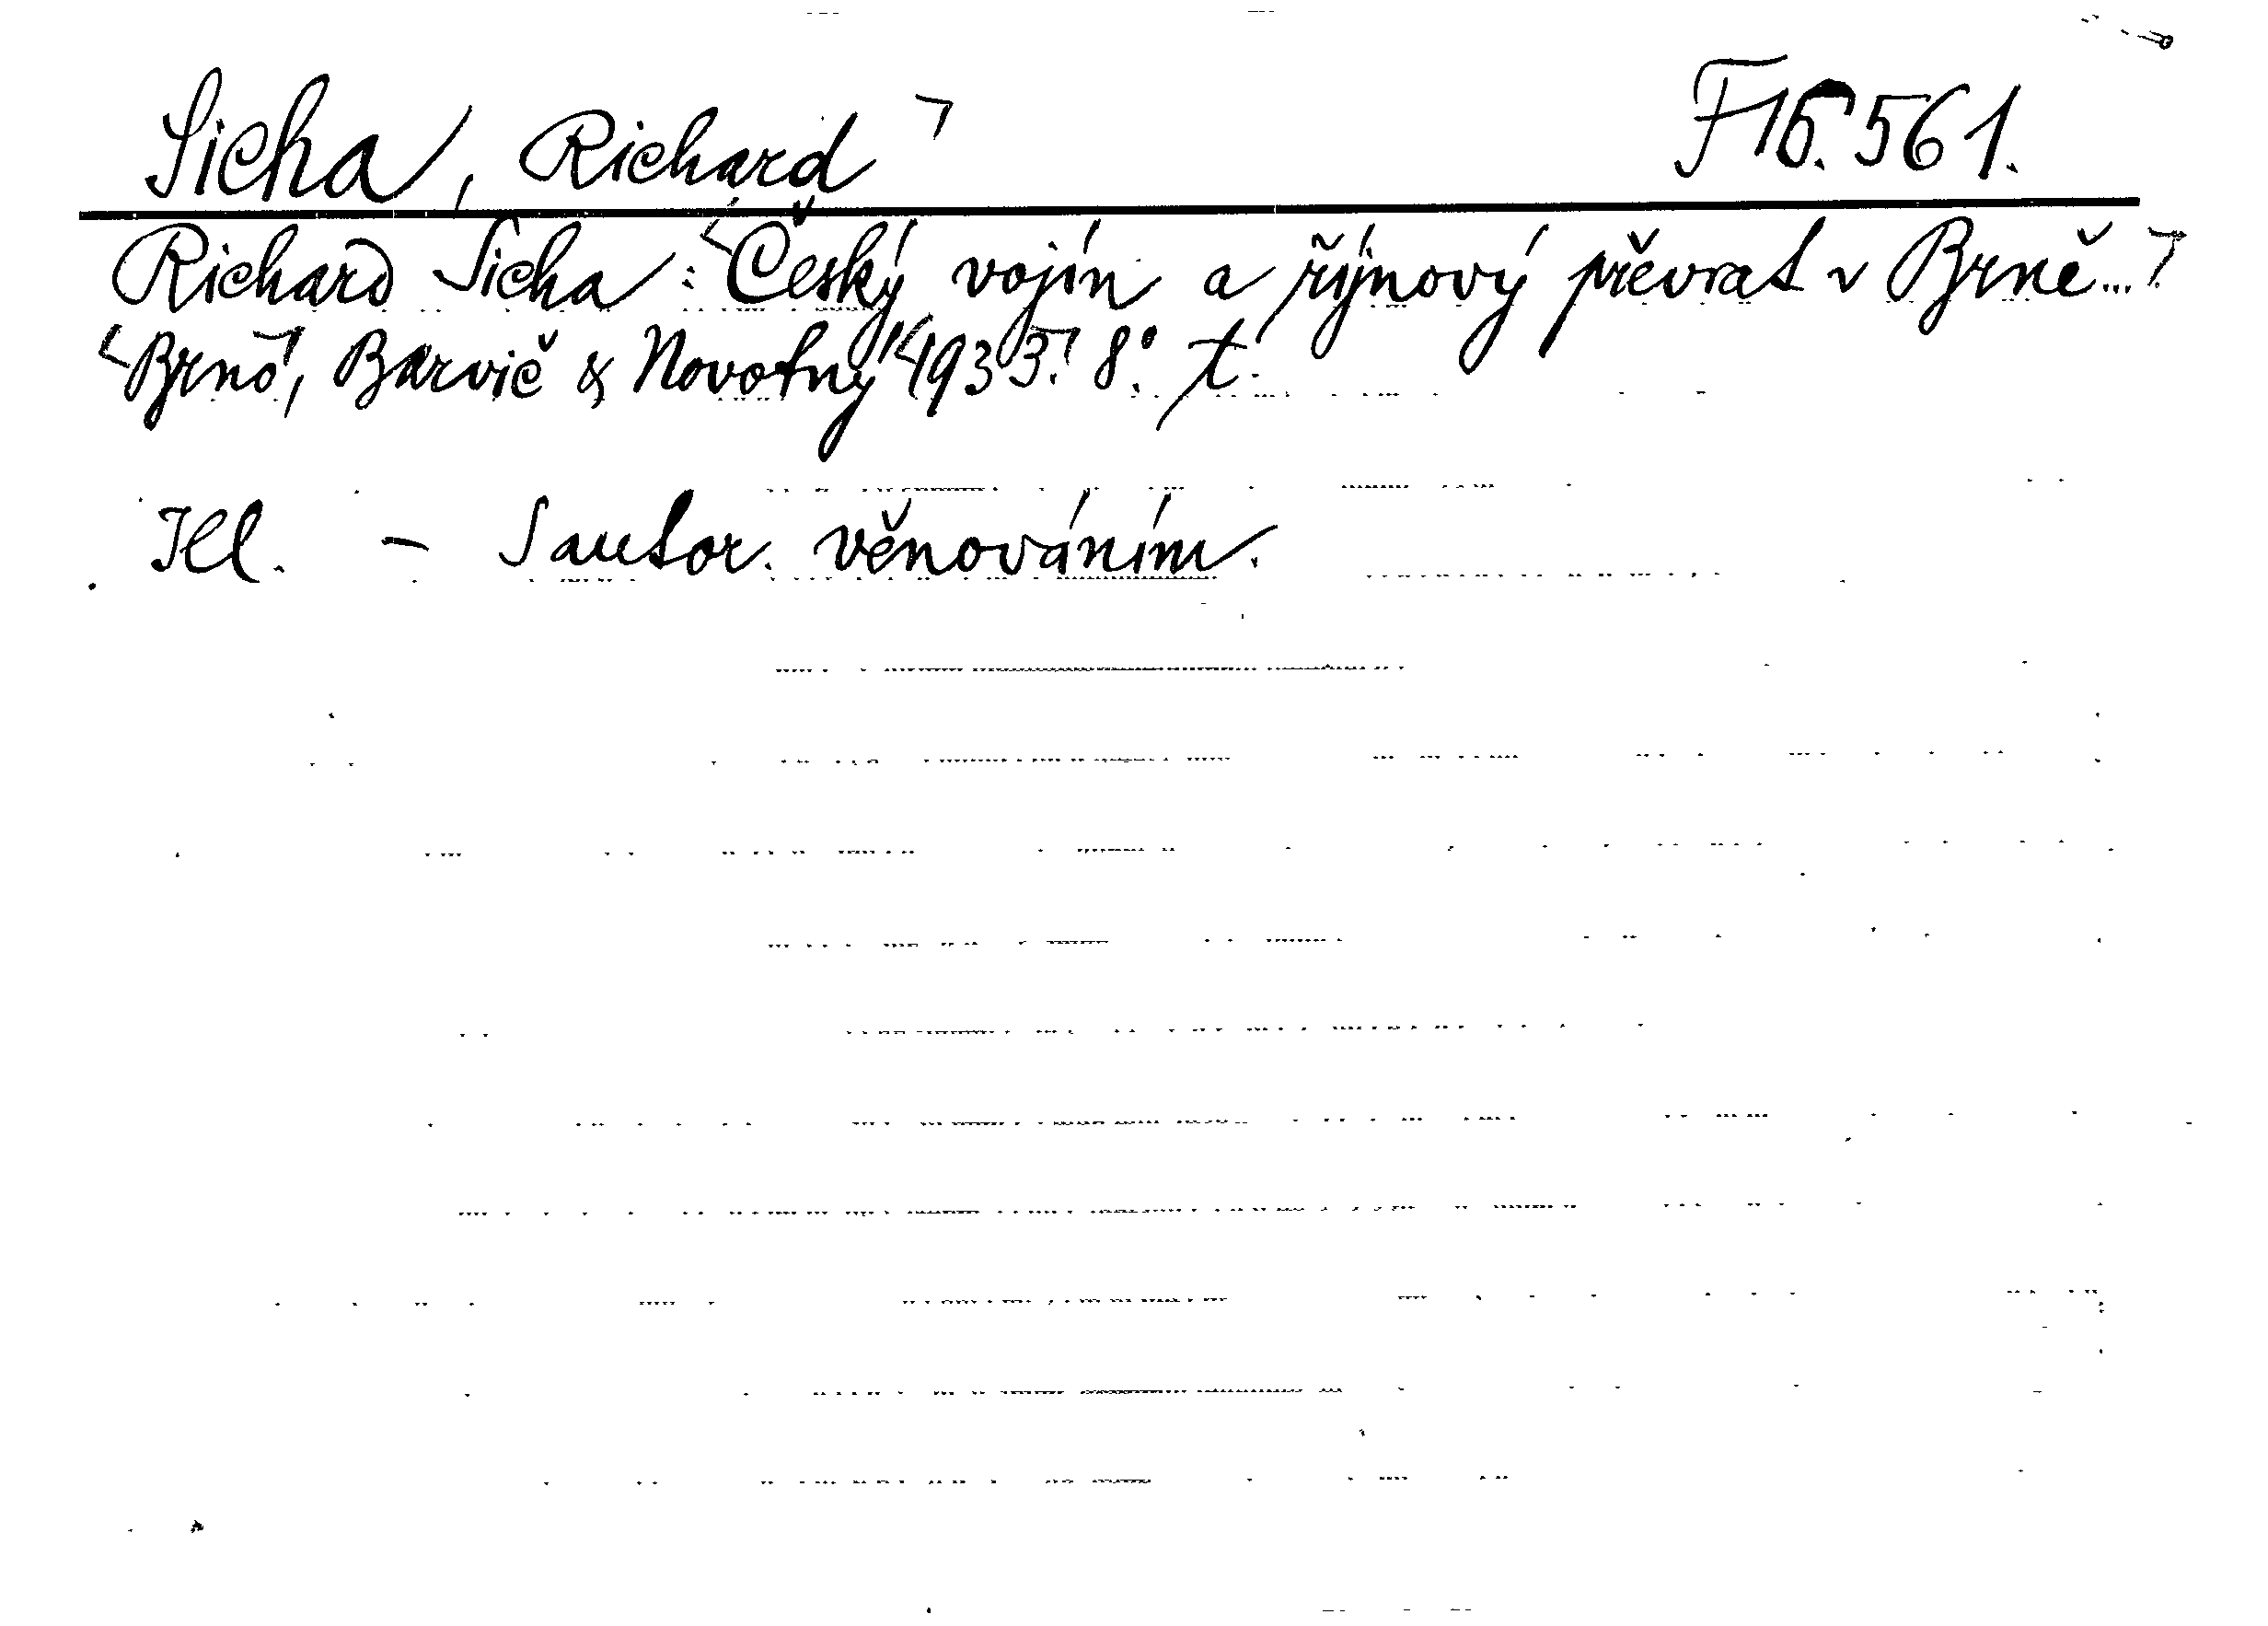 Sicha, Richard F 15.561.
Richard Sicha: Český vojín a říjnový převrat v Brně...
Brno, Barvič & Novotný 1935. 8°. t.
Ill. - S autor. věnováním.